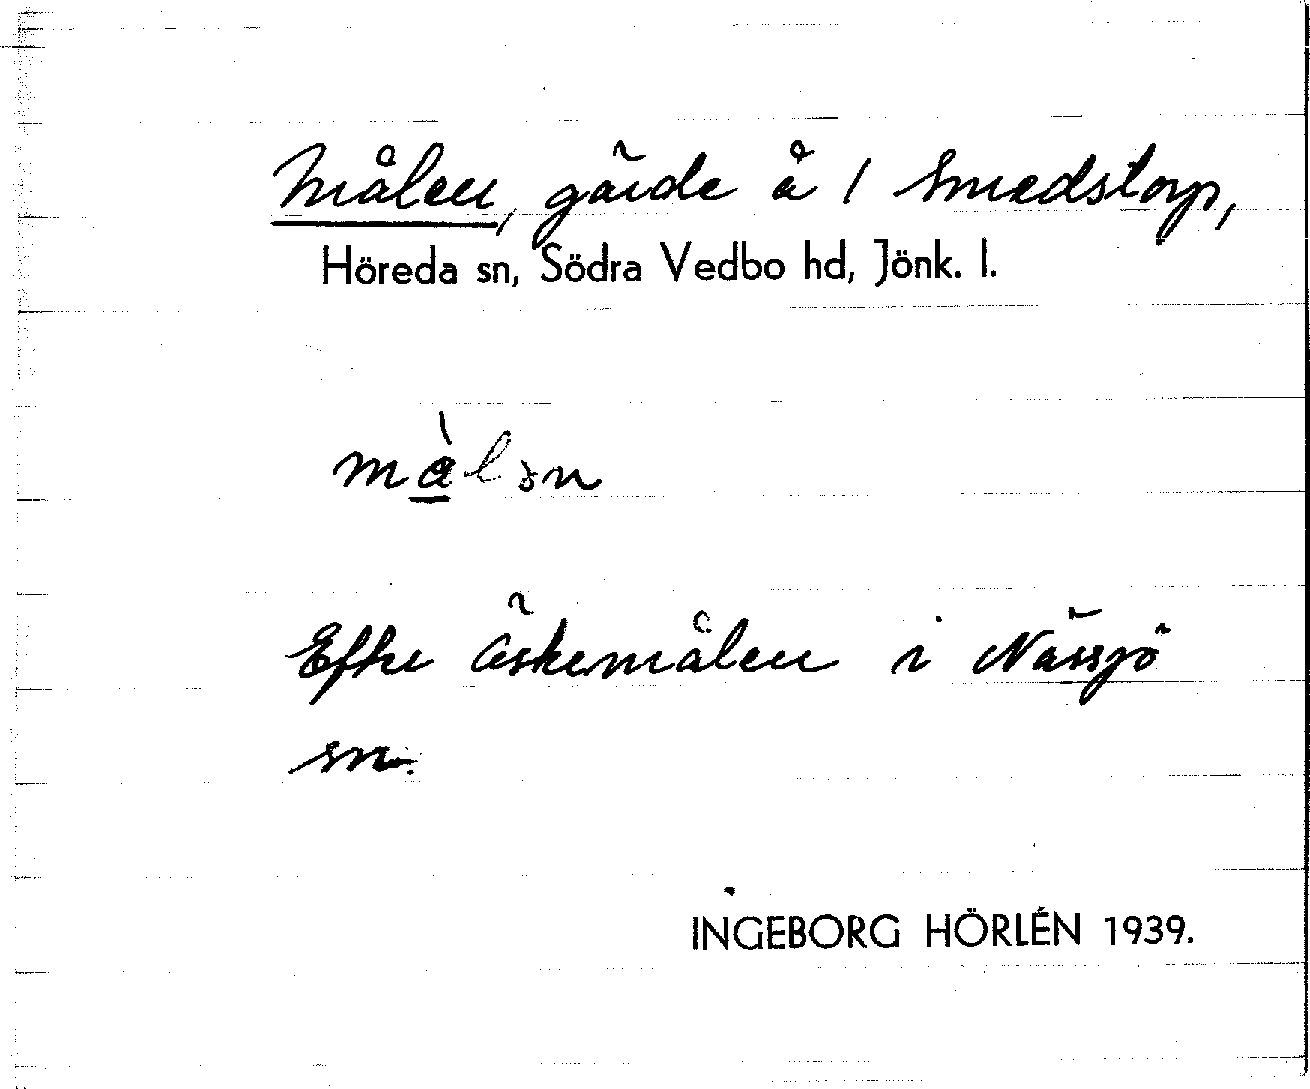 Målen, gärde å 1 Smedstorp,
Höreda sn, Södra Vedbo hd, Jönk. l.
màlən
Efter Äskemålen i Nässjö
sn.
INGEBORG HÖRLÉN 1939.